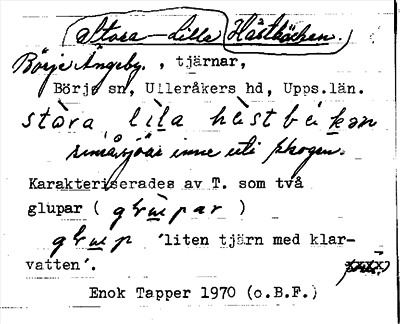 Stora - Lilla Hästbäcken.
Börje Ängeby., tjärnar,
Börje sn, Ulleråkers hd, Upps.län.
stòra lìla hæ̀stbékən
småsjöar inne uti skogen.
Karakteriserades av T. som två
glupar ( )
'liten tjärn med klar-
vatten'.
Enok Tapper 1970 (o.B.F.)